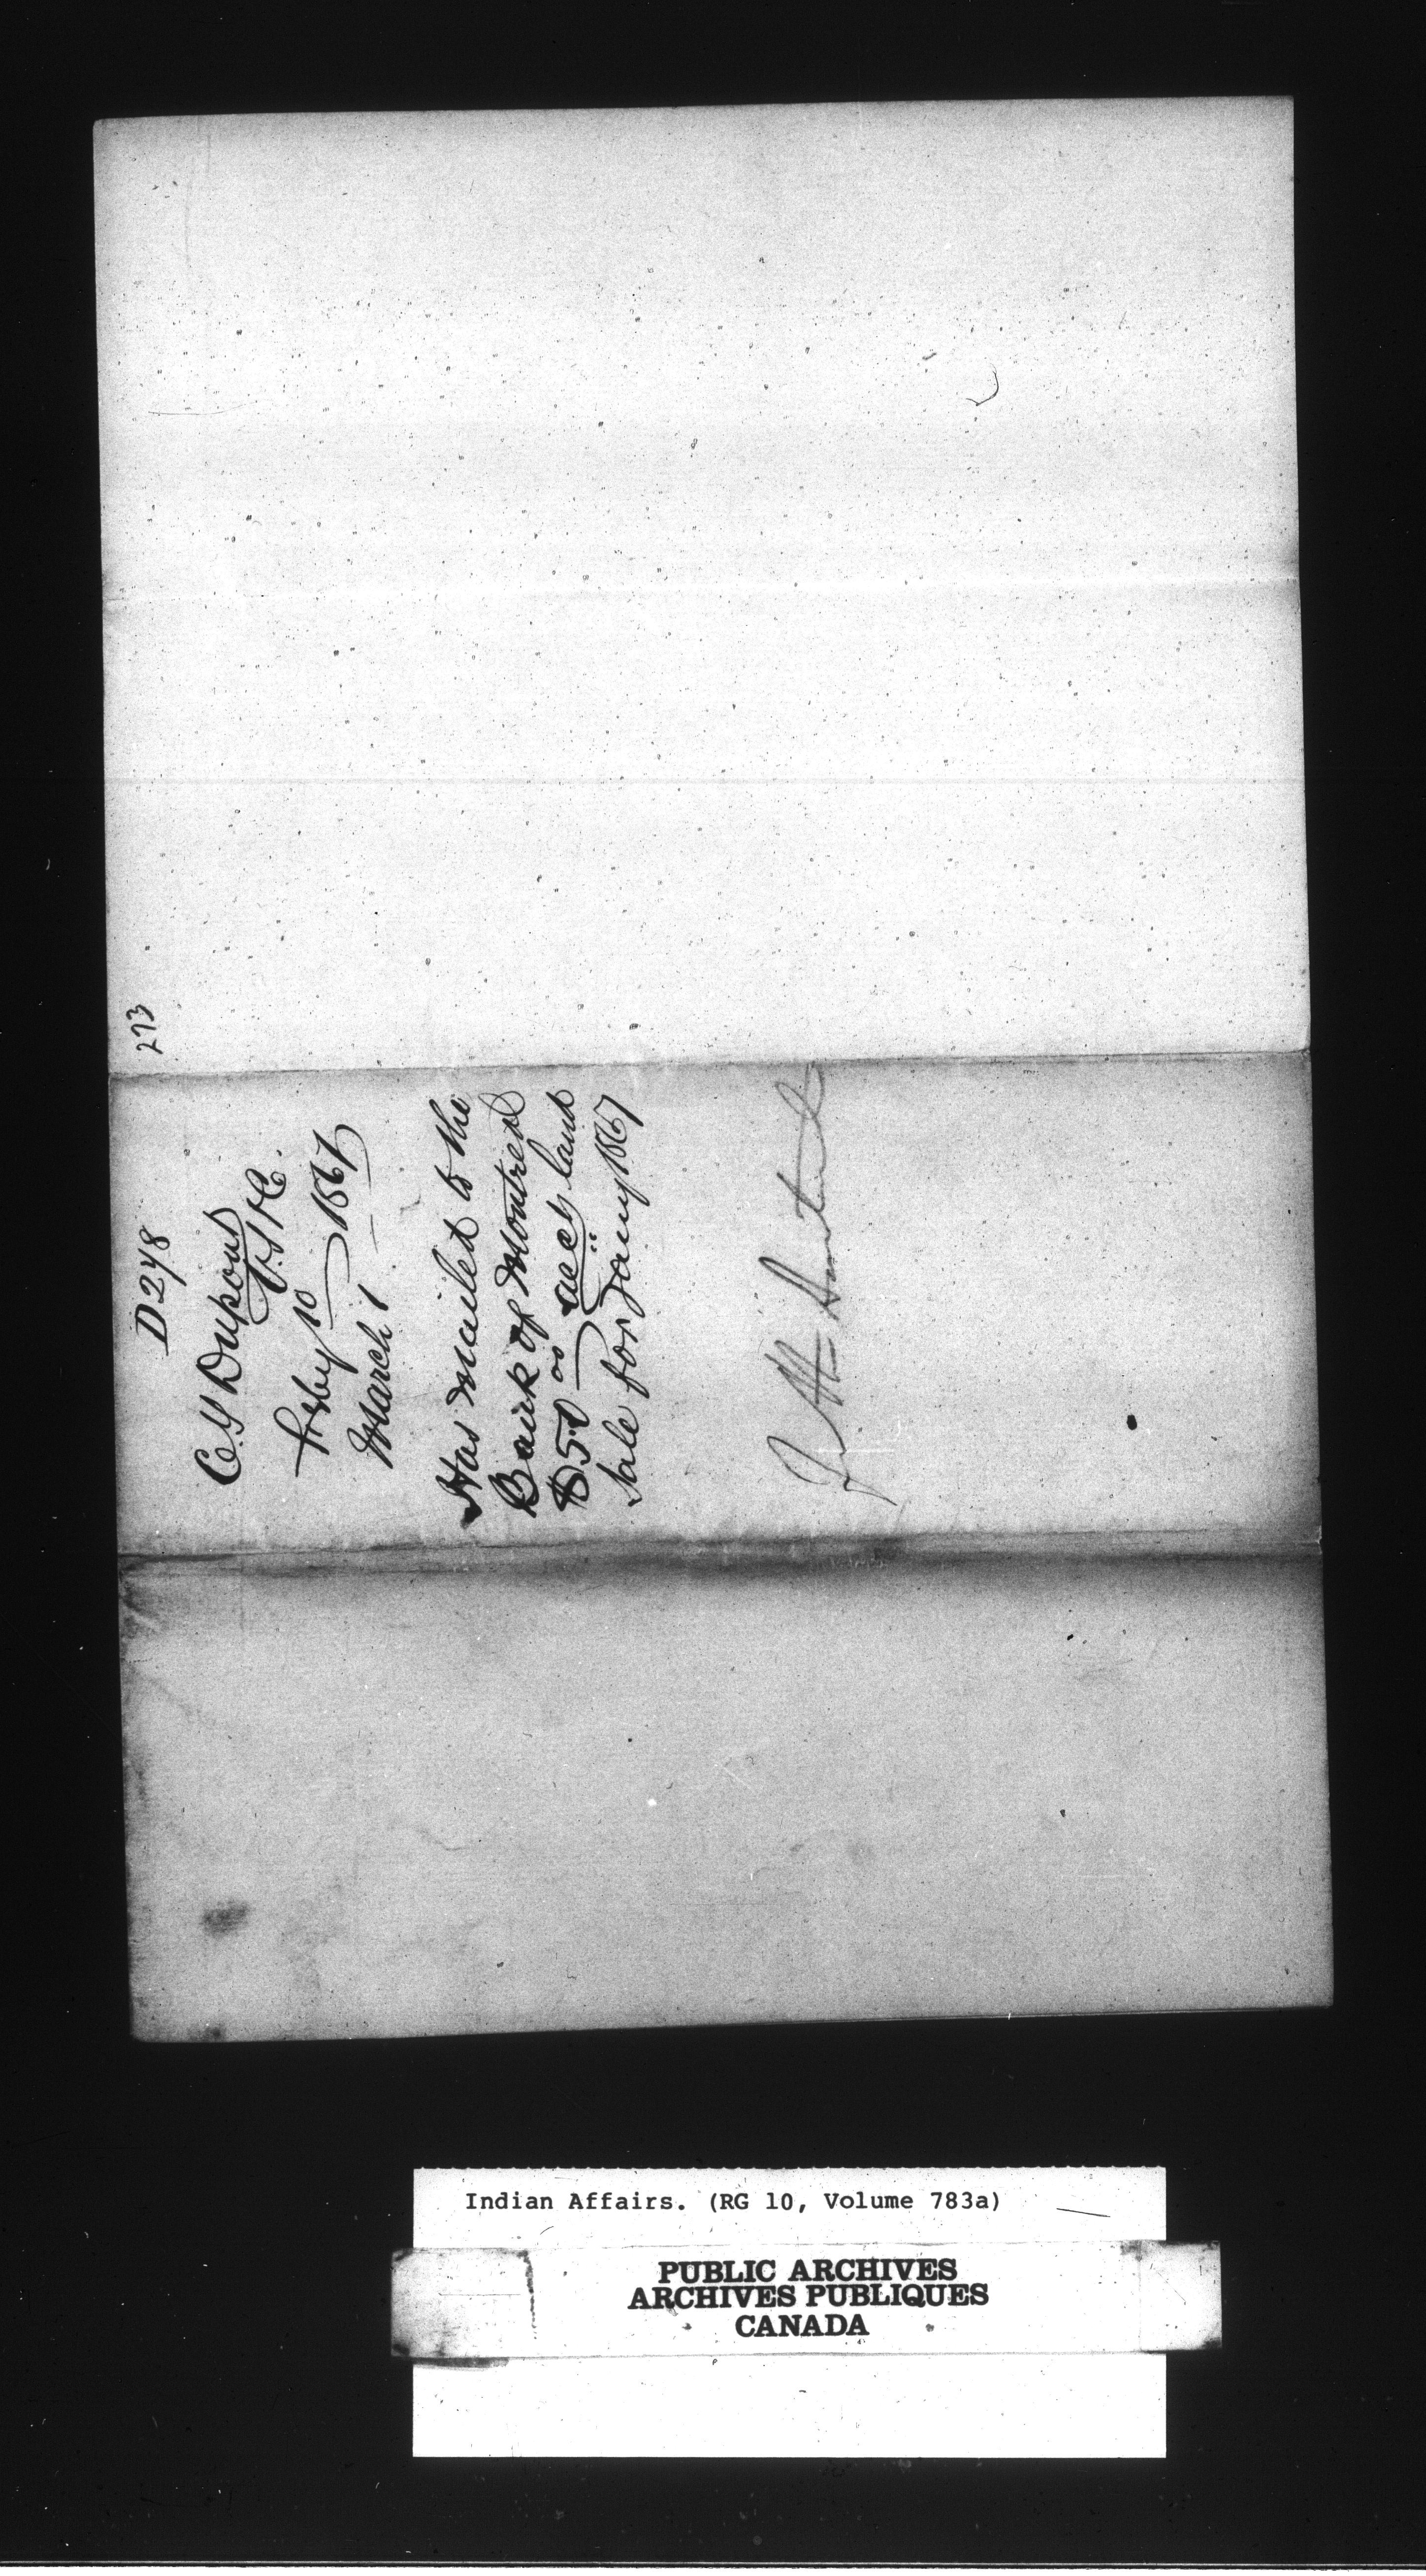 273
D 248
C. T. Dupont
V. S. I. C.
Feby 10 1867
March 1
Has mailed to the
Bank of Montreal
$50 00 acct land
sale for Jany 1867
J. H.
Indian Affairs. (RG 10, Volume 783a)
PUBLIC ARCHIVES
ARCHIVES PUBLIQUES
CANADA